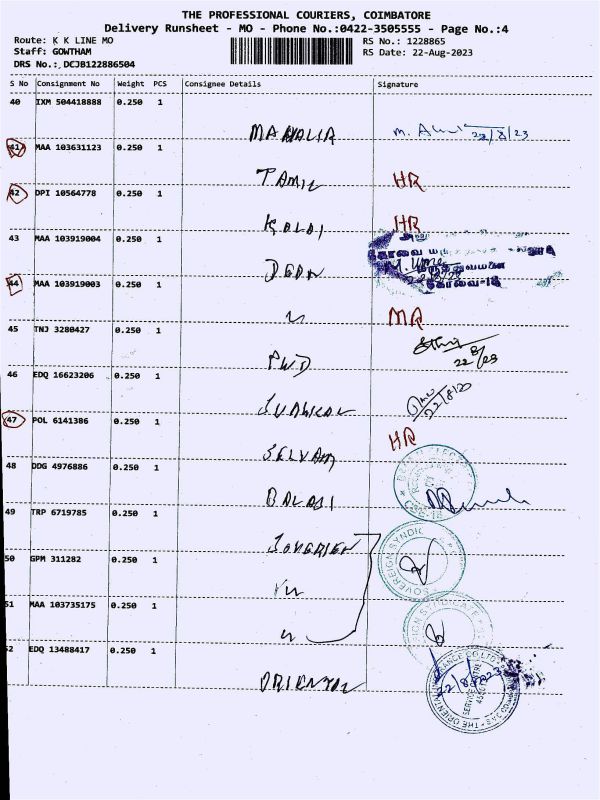 THE PROFESSIONAL COURIERS, COIMBATORE
Delivery Runsheet - MO - Phone No.:0422-3505555 - Page No.:4
Route: K K LINE MO
RS No.: 1228865
Staff: GOWTHAM
RS Date: 22-Aug-2023
DRS No.: DCJB122886504
S No Consignment No Weight PCS Consignee Details Signature
40 IXM 504418888 0.250 1
22/8/23
41 MAA 103631123 0.250 1
TAMIL HR
42 DPI 10564778 0.250 1
KALAI HR
43 MAA 103919004 0.250 1
DEAN
கோவை
மருத்துவமனை
கோவை-18
44 MAA 103919003 0.250 1
MR
45 TNJ 3280427 0.250 1
PWD 22/8/23
46 EDQ 16623206 0.250 1
22/8/23
47 POL 6141386 0.250 1
SELVAM HR
48 DDG 4976886 0.250 1
BALAJI
CBE-18
49 TRP 6719785 0.250 1
SOVEREIGN SYNDIC
50 GPM 311282 0.250 1
51 MAA 103735175 0.250 1
IGN SYNDICATE
52 EDQ 13488417 0.250 1
ORIENTAL
22/8/2023
THE ORIENTAL